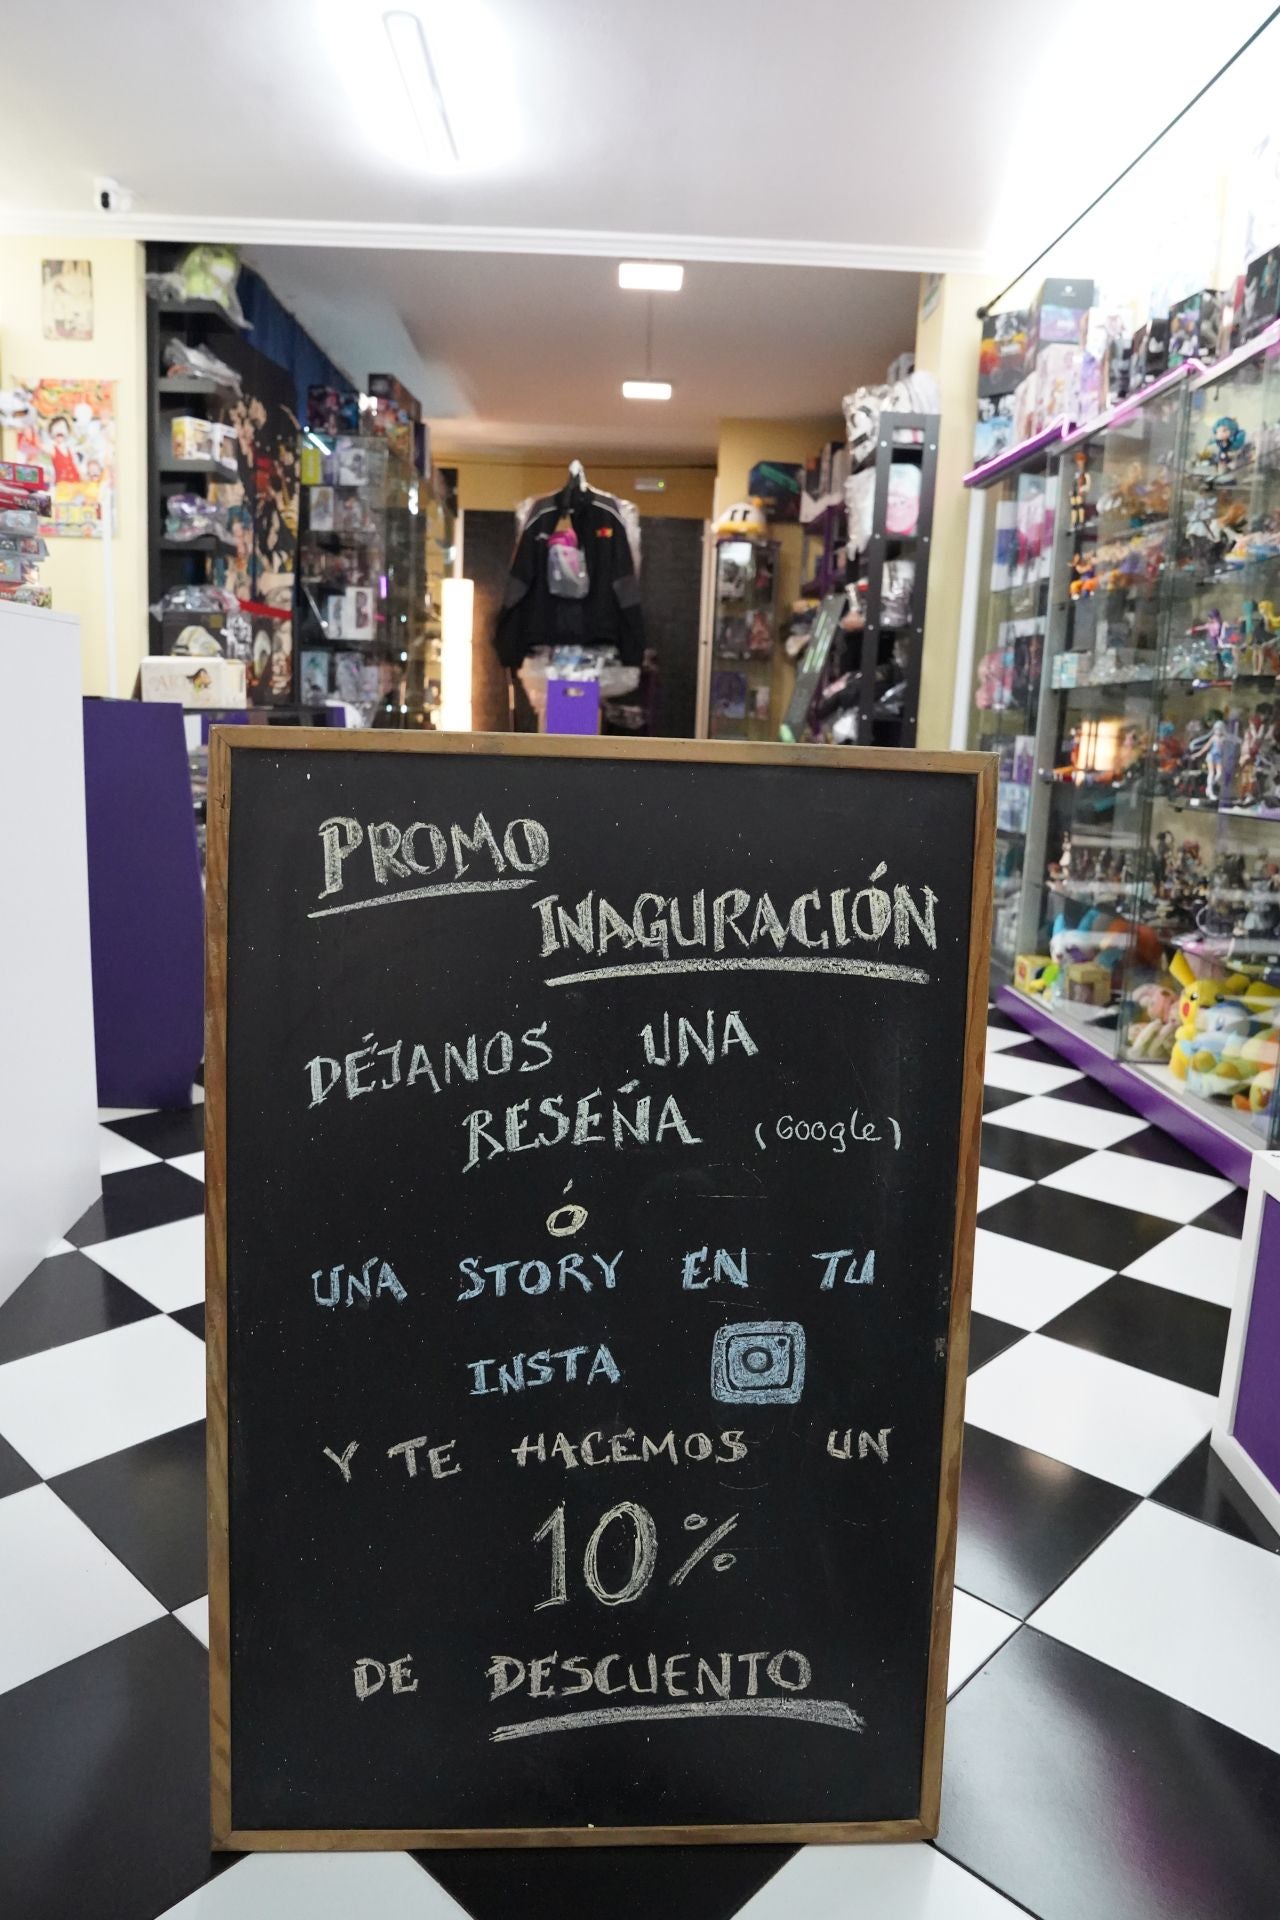 PROMO
INAGURACIÓN
DÉJANOS UNA
RESEÑA (Google)
Ó
UNA STORY EN TU
INSTA
Y TE HACEMOS UN
10%
DE DESCUENTO